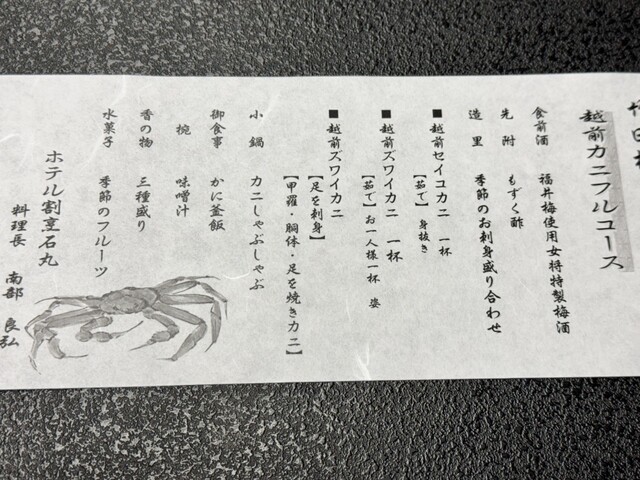 越前カニフルコース
食前酒 福井梅使用女将特製梅酒
先附 もずく酢
造里 季節のお刺身盛り合わせ
■越前セイコカニ 一杯
【茹で】身抜き
■越前ズワイカニ 一杯
【茹で】お一人様一杯 姿
■越前ズワイカニ
【足を刺身】
【甲羅・胴体・足を焼きカニ】
小鍋 カニしゃぶしゃぶ
御食事 かに釜飯
椀 味噌汁
香の物 三種盛り
水菓子 季節のフルーツ
ホテル割烹石丸
料理長 南部 良弘